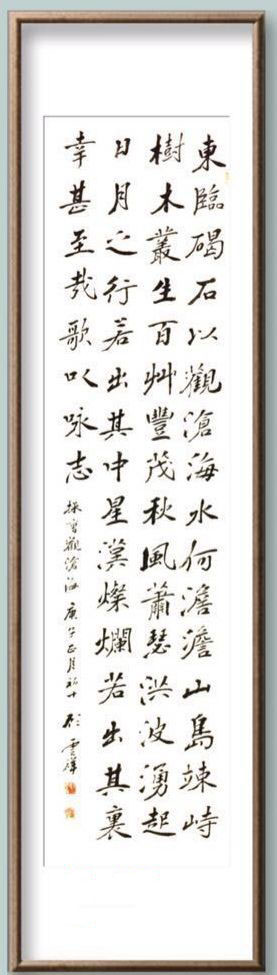 東臨碣石以觀滄海水何澹澹山島竦峙
樹木叢生百艸豐茂秋風蕭瑟洪波湧起
日月之行若出其中星漢燦爛若出其裏
幸甚至哉歌以咏志 操曹觀滄海 庚子正月初十 雲